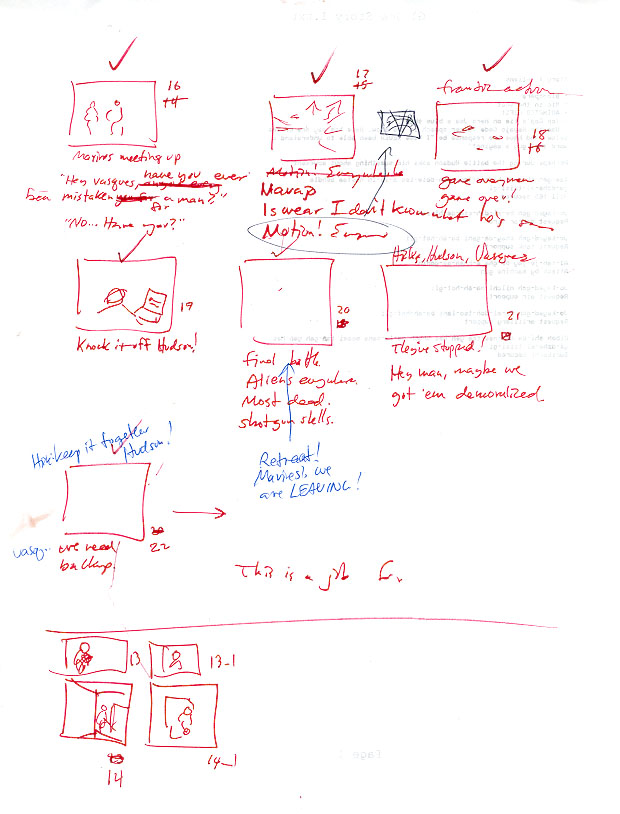 16
14
Marines meeting up
"Hey Vasques, have you ever
been mistaken for a man?"
"No... Have you?"
17
15
Motion!
Marap
I swear I don't know what he's
Motion!
frantic action
18
16
game over man
game over!
19
Knock it off Hudson!
20
final battle.
Aliens everywhere.
Most dead.
shotgun shells.
Retreat!
Marines, we
are LEAVING!
Hicks, Hudson, Vasquez
21
They've stopped!
Hey man, maybe we
got 'em demoralized
keep it together
Hudson!
20
22
vasq.. we need
backup.
This is a job
13
13_1
14
14_1
Page